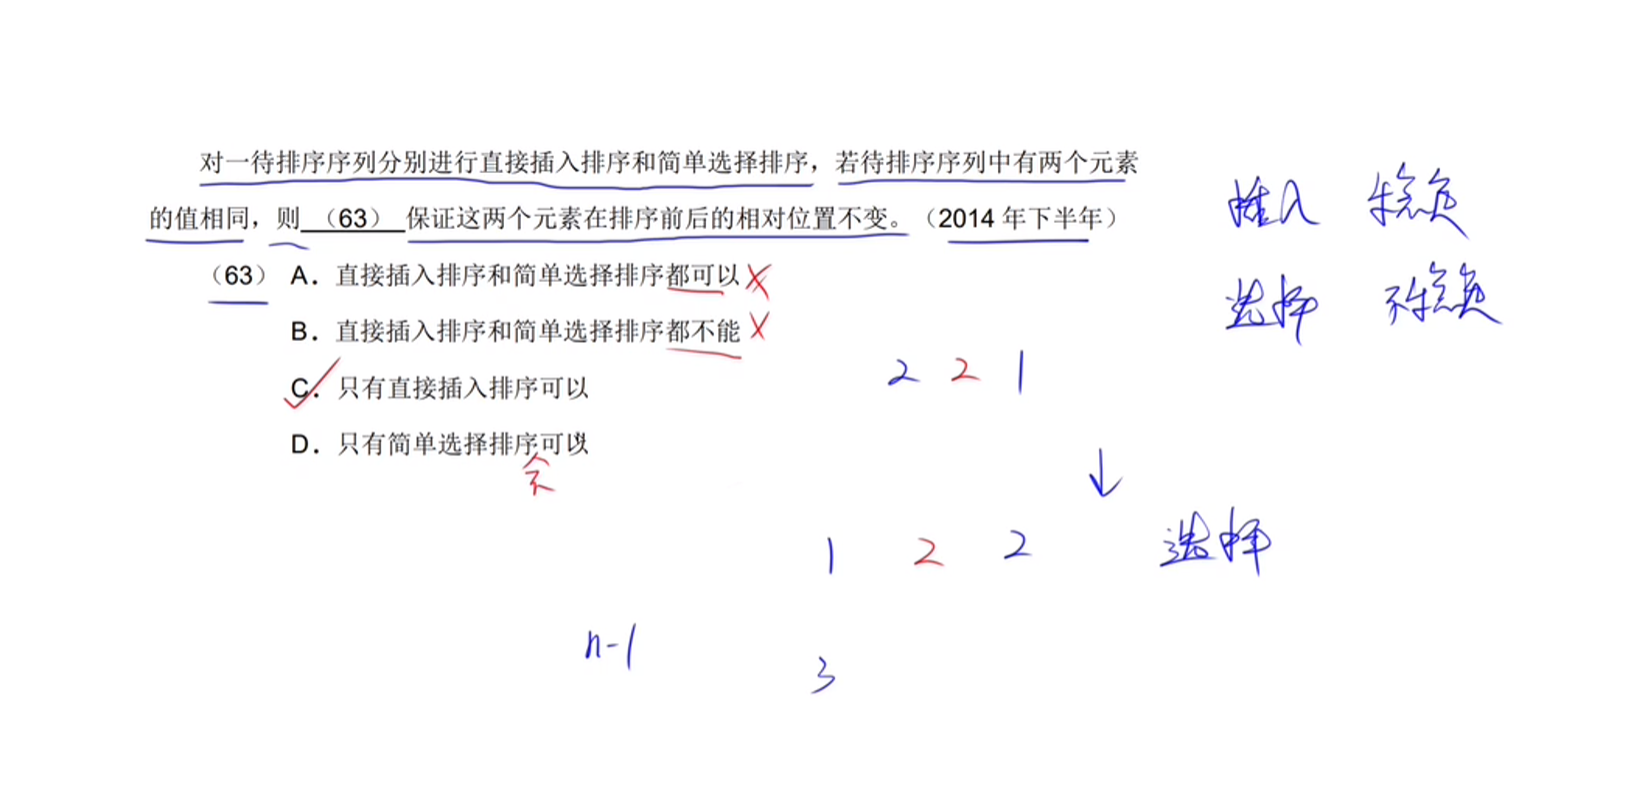 对一待排序序列分别进行直接插入排序和简单选择排序，若待排序序列中有两个元素
的值相同，则（63）保证这两个元素在排序前后的相对位置不变。（2014 年下半年）
（63） A．直接插入排序和简单选择排序都可以
B．直接插入排序和简单选择排序都不能
C．只有直接插入排序可以
D．只有简单选择排序可以
插入 稳定
选择 不稳定
2 2 1
1 2 2 选择
n-1
3